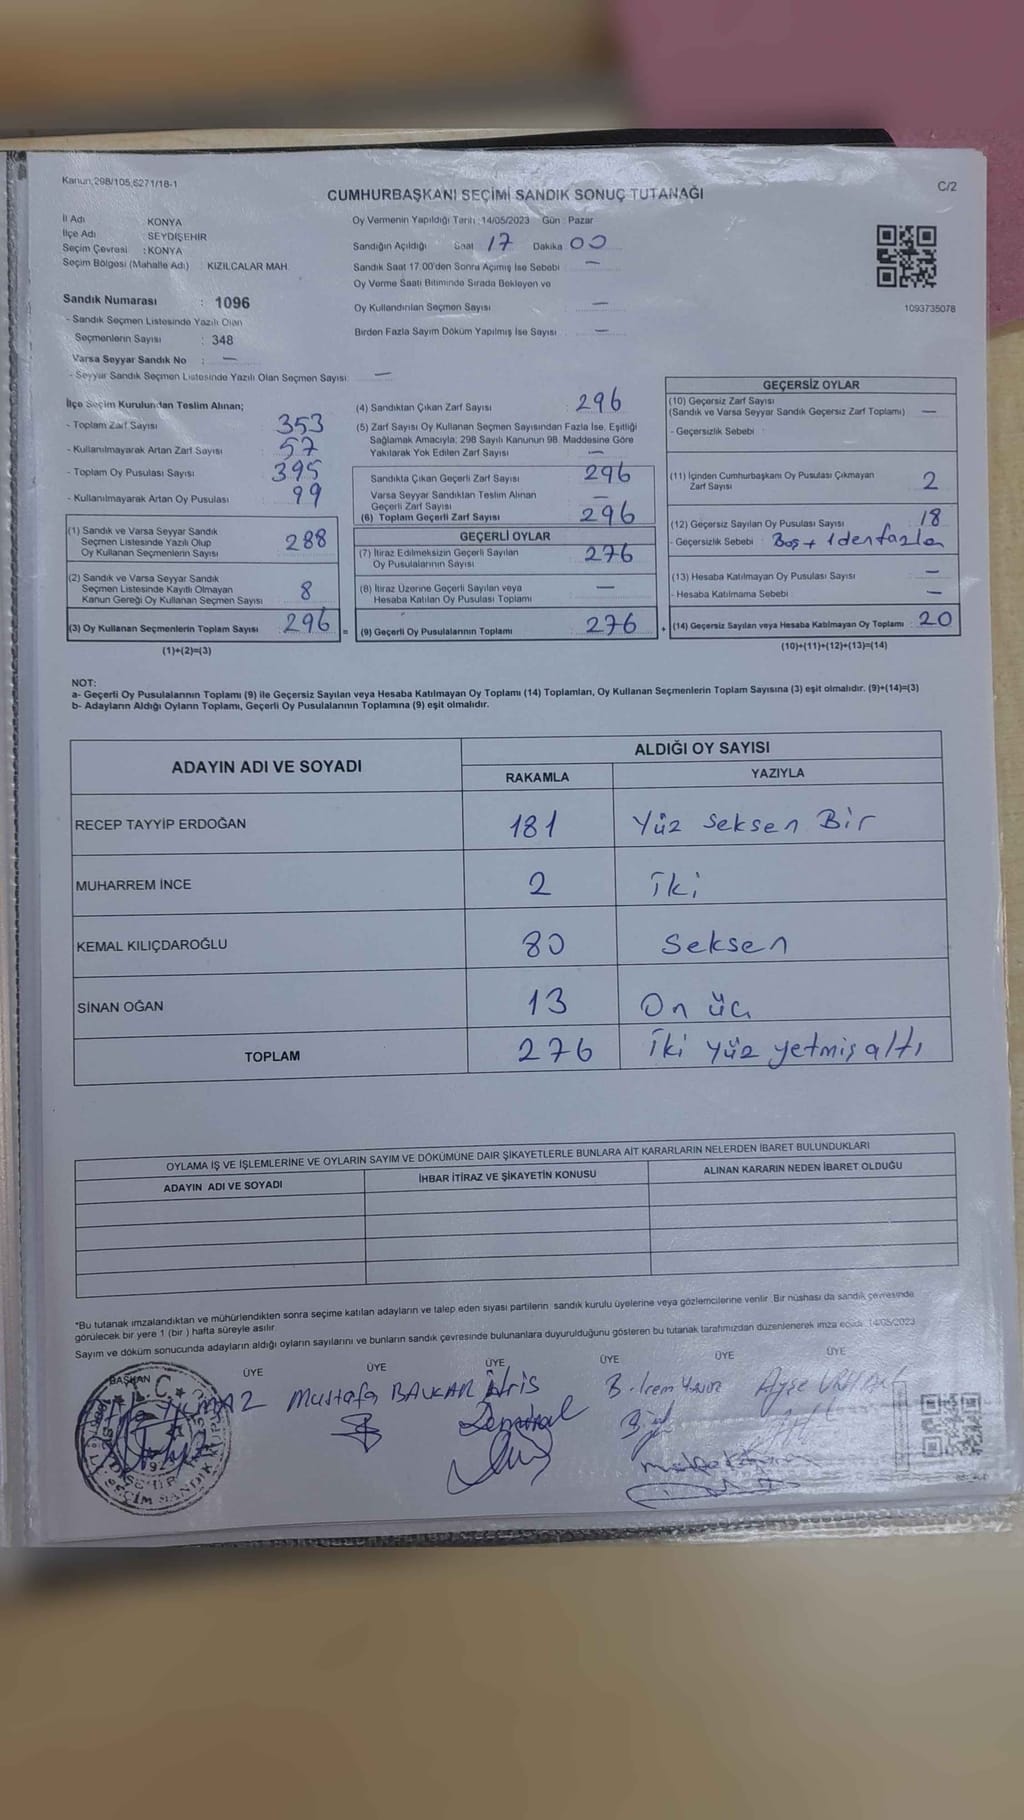 Kanun;298/105,6271/18-1
CUMHURBAŞKANI SEÇİMİ SANDIK SONUÇ TUTANAĞI
C/2
İl Adı KONYA
İlçe Adı SEYDİŞEHİR
Seçim Çevresi : KONYA
Seçim Bölgesi (Mahalle Adı) : KIZILCALAR MAH.
Oy Vermenin Yapıldığı Tarih : 14/05/2023 Gün : Pazar
Sandığın Açıldığı Saat 17 Dakika 00
Sandık Saat 17.00'den Sonra Açılmış İse Sebebi —
Oy Verme Saati Bitiminde Sırada Bekleyen ve
Oy Kullandırılan Seçmen Sayısı —
Birden Fazla Sayım Döküm Yapılmış İse Sayısı —
1093735078
Sandık Numarası : 1096
- Sandık Seçmen Listesinde Yazılı Olan
Seçmenlerin Sayısı : 348
Varsa Seyyar Sandık No : —
- Seyyar Sandık Seçmen Listesinde Yazılı Olan Seçmen Sayısı: —
İlçe Seçim Kurulundan Teslim Alınan;
- Toplam Zarf Sayısı 353
- Kullanılmayarak Artan Zarf Sayısı 57
- Toplam Oy Pusulası Sayısı 395
- Kullanılmayarak Artan Oy Pusulası 99
(1) Sandık ve Varsa Seyyar Sandık
Seçmen Listesinde Yazılı Olup
Oy Kullanan Seçmenlerin Sayısı 288
(2) Sandık ve Varsa Seyyar Sandık
Seçmen Listesinde Kayıtlı Olmayan
Kanun Gereği Oy Kullanan Seçmen Sayısı 8
(3) Oy Kullanan Seçmenlerin Toplam Sayısı 296 =
(1)+(2)=(3)
(4) Sandıktan Çıkan Zarf Sayısı 296
(5) Zarf Sayısı Oy Kullanan Seçmen Sayısından Fazla İse, Eşitliği
Sağlamak Amacıyla; 298 Sayılı Kanunun 98. Maddesine Göre
Yakılarak Yok Edilen Zarf Sayısı —
Sandıkta Çıkan Geçerli Zarf Sayısı 296
Varsa Seyyar Sandıktan Teslim Alınan
Geçerli Zarf Sayısı —
(6) Toplam Geçerli Zarf Sayısı 296
GEÇERLİ OYLAR
(7) İtiraz Edilmeksizin Geçerli Sayılan
Oy Pusulalarının Sayısı 276
(8) İtiraz Üzerine Geçerli Sayılan veya
Hesaba Katılan Oy Pusulası Toplamı —
(9) Geçerli Oy Pusulalarının Toplamı 276 +
GEÇERSİZ OYLAR
(10) Geçersiz Zarf Sayısı
(Sandık ve Varsa Seyyar Sandık Geçersiz Zarf Toplamı) —
- Geçersizlik Sebebi :
(11) İçinden Cumhurbaşkanı Oy Pusulası Çıkmayan
Zarf Sayısı 2
(12) Geçersiz Sayılan Oy Pusulası Sayısı 18
- Geçersizlik Sebebi : Boş + 1 den fazla
(13) Hesaba Katılmayan Oy Pusulası Sayısı —
- Hesaba Katılmama Sebebi : —
(14) Geçersiz Sayılan veya Hesaba Katılmayan Oy Toplamı : 20
(10)+(11)+(12)+(13)=(14)
NOT:
a- Geçerli Oy Pusulalarının Toplamı (9) ile Geçersiz Sayılan veya Hesaba Katılmayan Oy Toplamı (14) Toplamları, Oy Kullanan Seçmenlerin Toplam Sayısına (3) eşit olmalıdır. (9)+(14)=(3)
b- Adayların Aldığı Oyların Toplamı, Geçerli Oy Pusulalarının Toplamına (9) eşit olmalıdır.
ADAYIN ADI VE SOYADI
ALDIĞI OY SAYISI
RAKAMLA YAZIYLA
RECEP TAYYİP ERDOĞAN 181 Yüz seksen Bir
MUHARREM İNCE 2 iki
KEMAL KILIÇDAROĞLU 80 Seksen
SİNAN OĞAN 13 On üç
TOPLAM 276 iki yüz yetmiş altı
OYLAMA İŞ VE İŞLEMLERİNE VE OYLARIN SAYIM VE DÖKÜMÜNE DAİR ŞİKAYETLERLE BUNLARA AİT KARARLARIN NELERDEN İBARET BULUNDUKLARI
ADAYIN ADI VE SOYADI
İHBAR İTİRAZ VE ŞİKAYETİN KONUSU
ALINAN KARARIN NEDEN İBARET OLDUĞU
*Bu tutanak imzalandıktan ve mühürlendikten sonra seçime katılan adayların ve talep eden siyasi partilerin sandık kurulu üyelerine veya gözlemcilerine verilir. Bir nüshası da sandık çevresinde
görülecek bir yere 1 (bir) hafta süreyle asılır.
Sayım ve döküm sonucunda adayların aldığı oyların sayılarını ve bunların sandık çevresinde bulunanlara duyurulduğunu gösteren bu tutanak tarafımızdan düzenlenerek imza edildi. 14/05/2023
BAŞKAN ÜYE ÜYE ÜYE ÜYE ÜYE ÜYE
Mustafa
Ayşe
T.C.
SEÇİM SANDIK